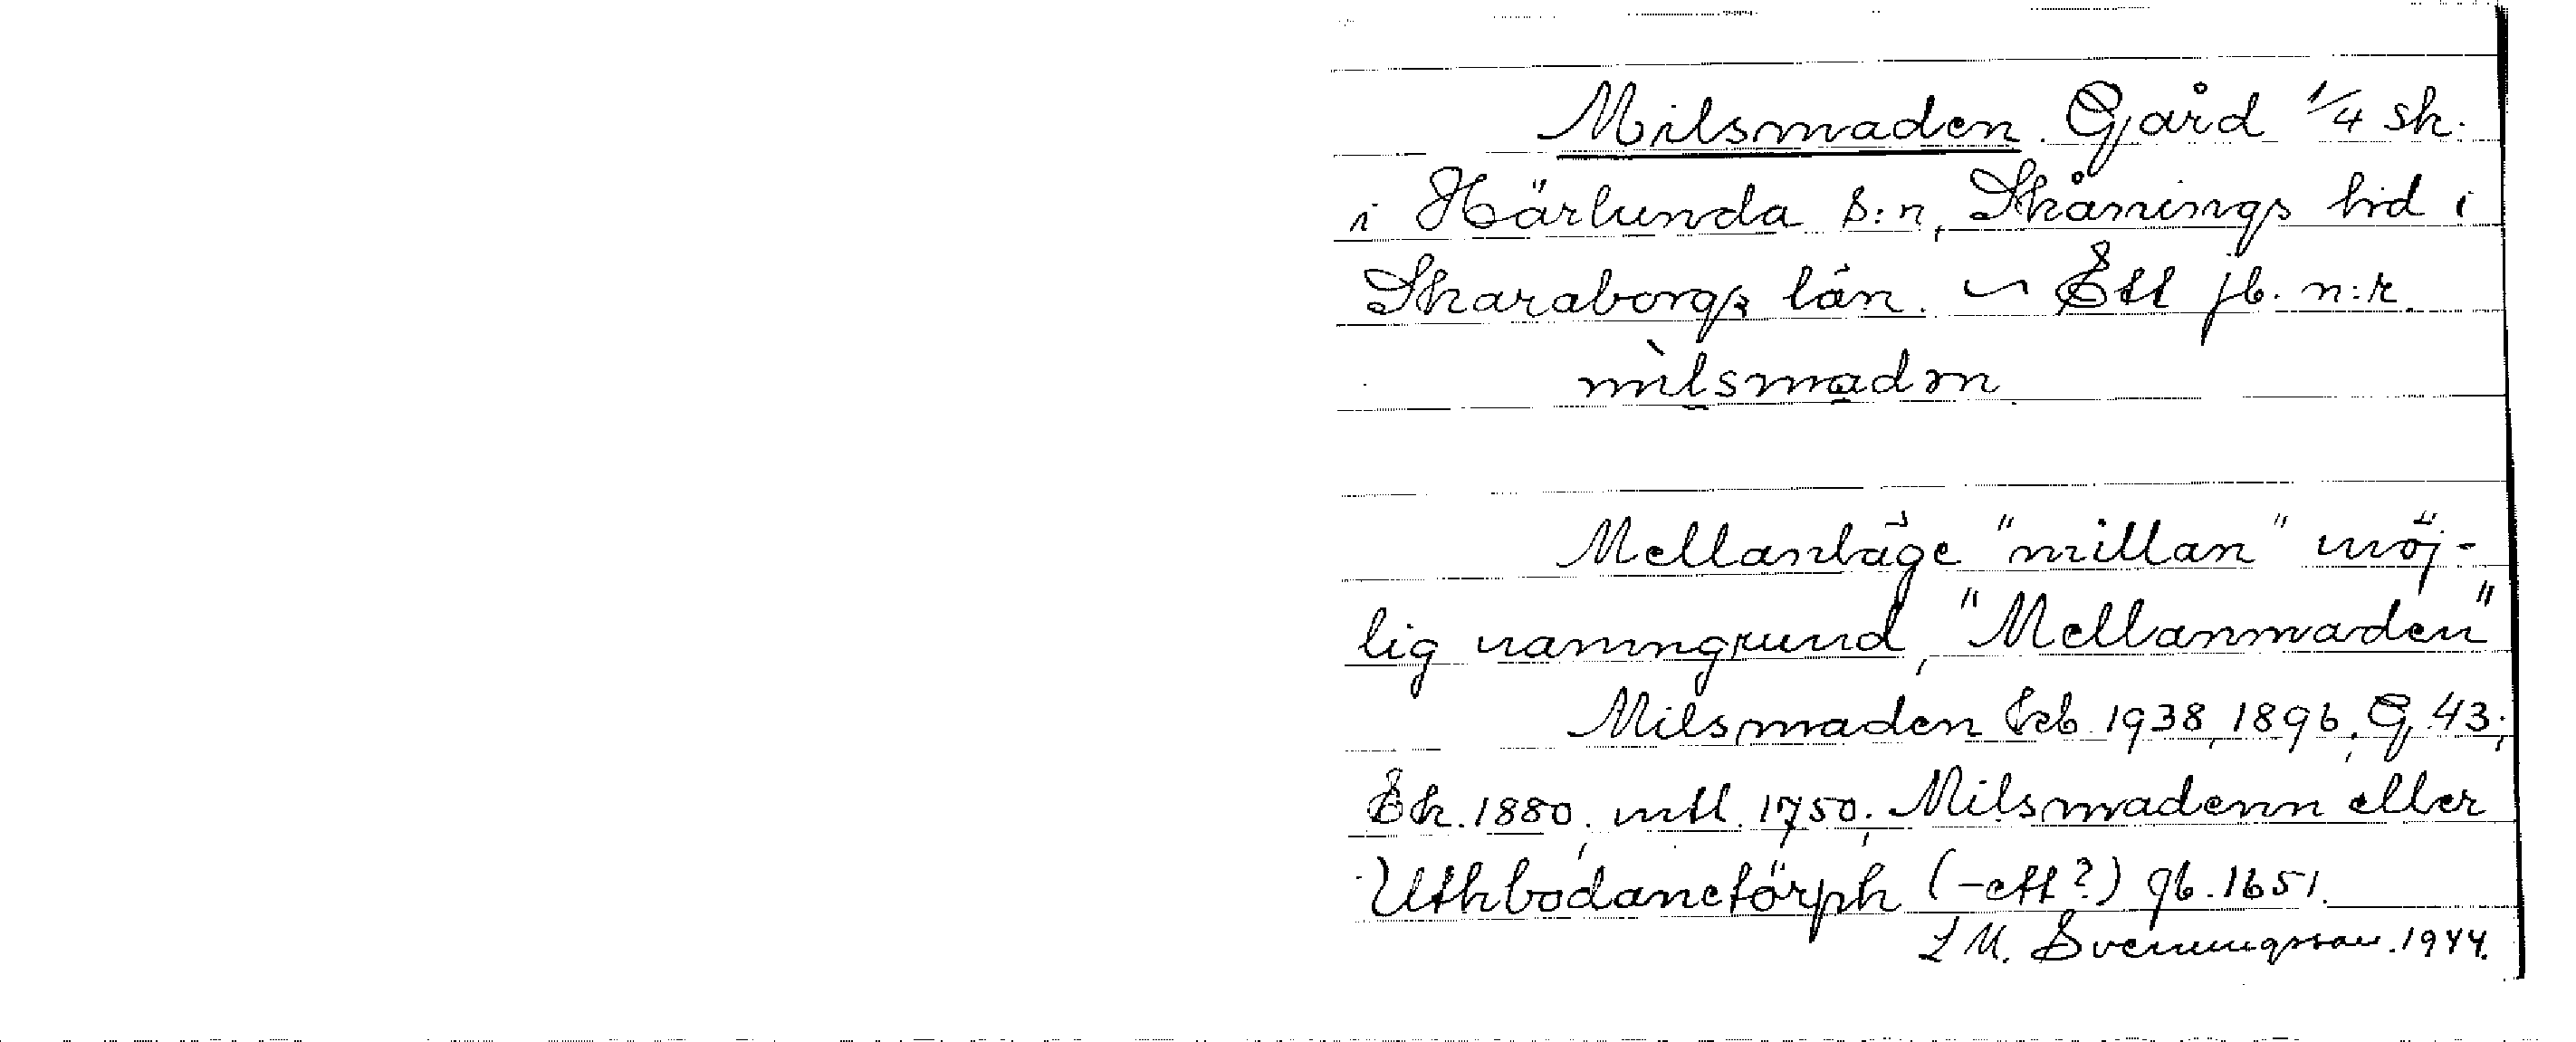 Milsmaden. Gård 1/4 sk.
i Härlunda s:n, Skånings hd i
Skaraborgs län. ~ Ett jb. n:r.
mìlsmadn
Mellanläge "millan" möj-
lig namngrund, "Mellanmaden"
Milsmaden Jeb 1938, 1896, G 43;
Ek. 1880; mtl. 1750; Milsmadenn eller
Uthbodanetörph (-ett?) jb. 1651.
L M. Svenungsson. 1944.